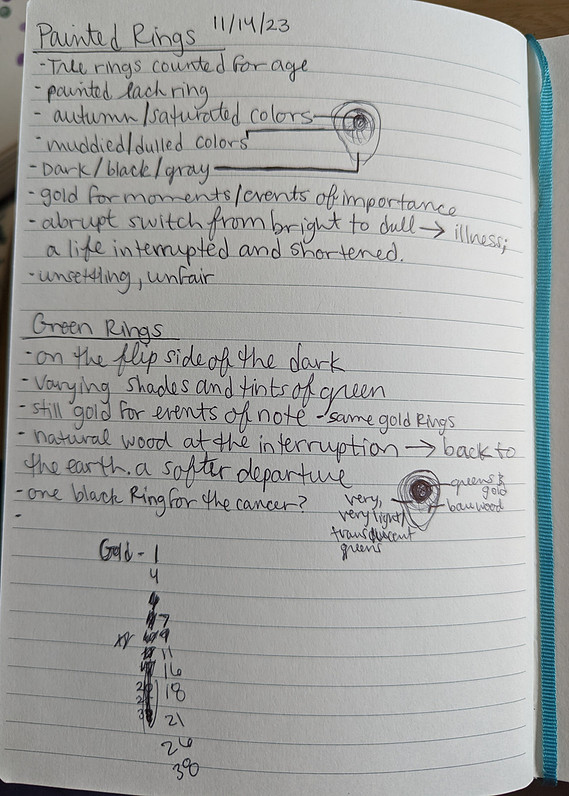 Painted Rings 11/14/23
- Tree rings counted for age
- painted each ring
- autumn/saturated colors
- muddied/dulled colors
- Dark/black/gray
- gold for moments/events of importance
- abrupt switch from bright to dull → illness;
a life interrupted and shortened.
- unsettling, unfair
Green Rings
- on the flip side of the dark
- Varying shades and tints of green
- still gold for events of note - same gold Rings
- natural wood at the interruption → back to
the earth. a softer departure
- one black Ring for the cancer?
-
greens &
gold
bare wood
very,
very light/
translucent
greens
Gold - 1
4
7
9
11
16
18
21
26
38